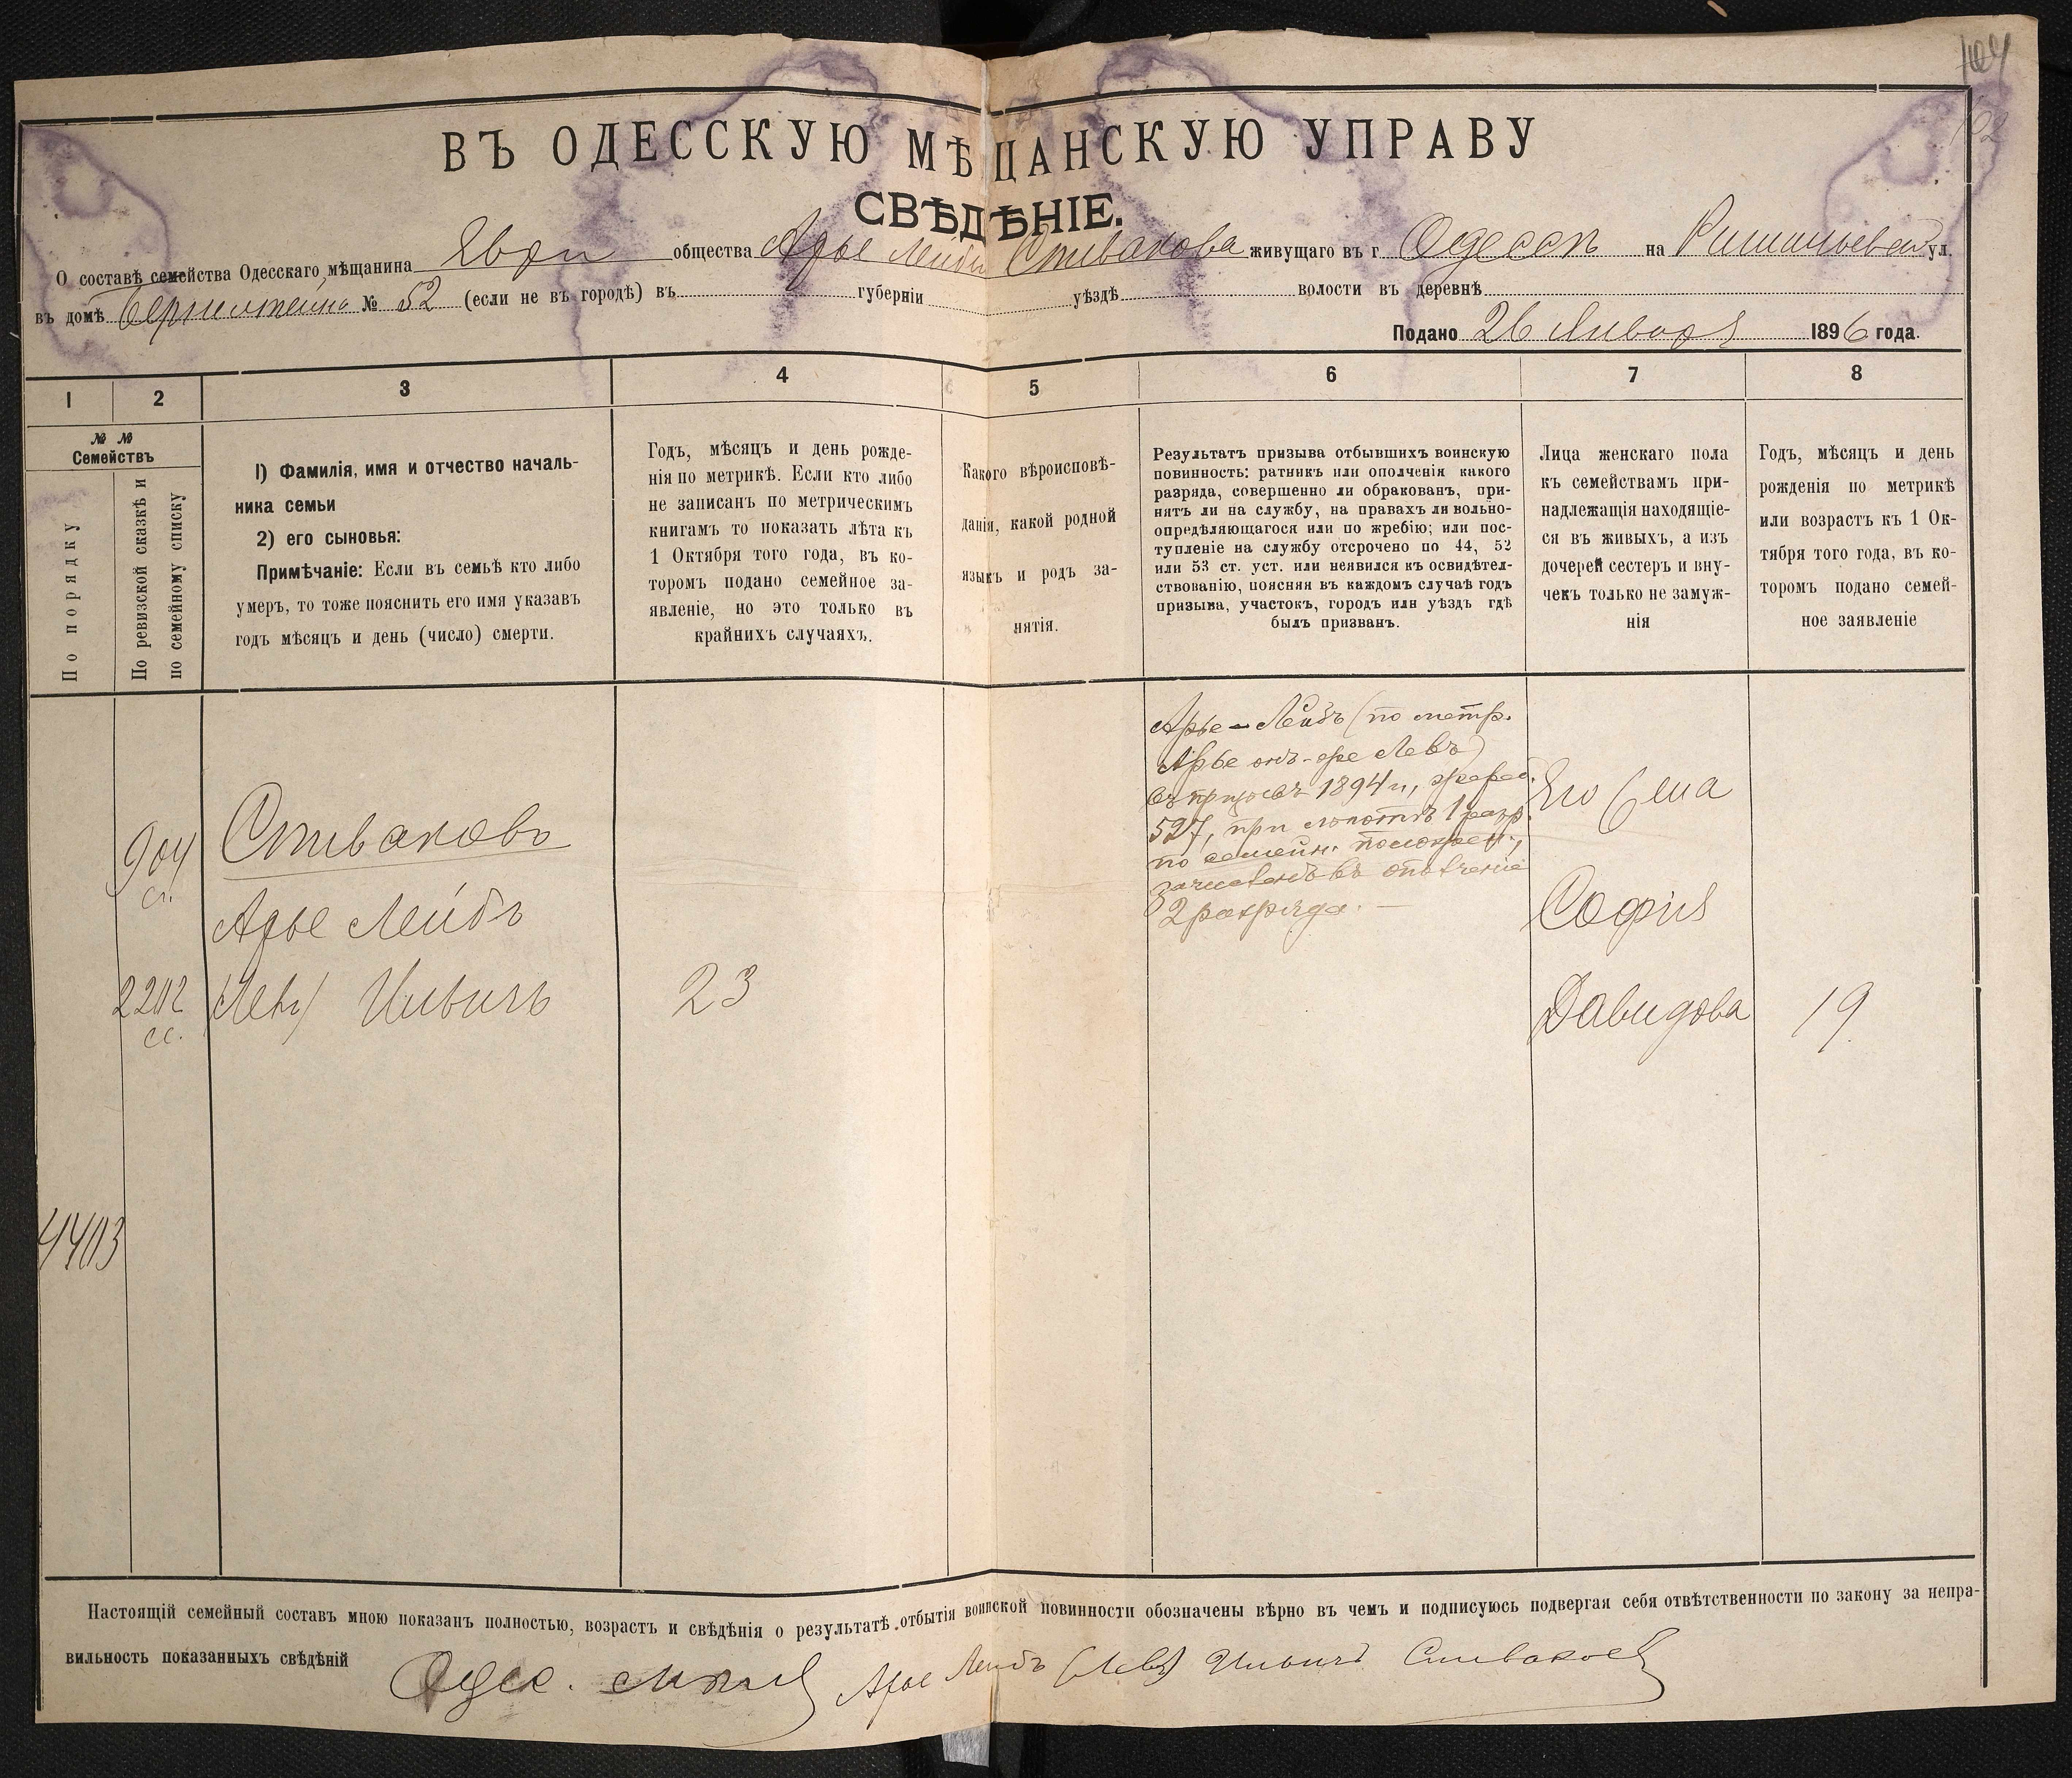 104
102
ВЪ ОДЕССКУЮ МѢЩАНСКУЮ УПРАВУ
СВѢДѢНІЕ.
О составѣ семейства Одесскаго мѣщанина Евр. общества Арье Лейба Спивакова живущаго въ г. Одессѣ на Ришельевской ул.
въ домѣ Бернштейна № 52 (если не въ городѣ) въ губерніи уѣздѣ волости въ деревнѣ
Подано 26 Января 1896 года.
1 2 3 4 5 6 7 8
№ № Семействъ
По порядку
По ревизской сказкѣ и
по семейному списку
1) Фамилія, имя и отчество началь-
ника семьи
2) его сыновья:
Примѣчаніе: Если въ семьѣ кто либо
умеръ, то тоже пояснить его имя указавъ
годъ мѣсяцъ и день (число) смерти.
Годъ, мѣсяцъ и день рожде-
нія по метрикѣ. Если кто либо
не записанъ по метрическимъ
книгамъ то показать лѣта къ
1 Октября того года, въ ко-
торомъ подано семейное за-
явленіе, но это только въ
крайнихъ случаяхъ.
Какого вѣроисповѣ-
данія, какой родной
языкъ и родъ за-
нятія.
Результатъ призыва отбывшихъ воинскую
повинность: ратникъ или ополченія какого
разряда, совершенно ли обракованъ, при-
нятъ ли на службу, на правахъ ли вольно-
опредѣляющагося или по жребію; или пос-
тупленіе на службу отсрочено по 44, 52
или 53 ст. уст. или неявился къ освидѣтел-
ствованію, поясняя въ каждомъ случаѣ годъ
призыва, участокъ, городъ или уѣздъ гдѣ
былъ призванъ.
Лица женскаго пола
къ семействамъ при-
надлежащія находящіе-
ся въ живыхъ, а изъ
дочерей сестеръ и вну-
чекъ только не замуж-
нія
Годъ, мѣсяцъ и день
рожденія по метрикѣ
или возрастъ къ 1 Ок-
тября того года, въ ко-
торомъ подано семей-
ное заявленіе
904
ст.
2202
сс.
4403
Спиваковъ
Арье Лейбъ
(Левъ) Ильичъ
23
Арье-Лейбъ (по метр.
Арье онъ-же Левъ)
въ призывъ 1894 г., жереб.
527, при льготѣ 1 разр.
по семейн. положен.,
зачисленъ въ ополченіе
2 разряда. —
Его жена
Софія
Давидова
19
Настоящій семейный составъ мною показанъ полностью, возрастъ и свѣдѣнія о результатѣ отбытія воинской повинности обозначены вѣрно въ чемъ и подписуюсь подвергая себя отвѣтственности по закону за непра-
вильность показанныхъ свѣдѣній
Одес. Арье Лейбъ (Левъ) Ильичъ Спиваковъ